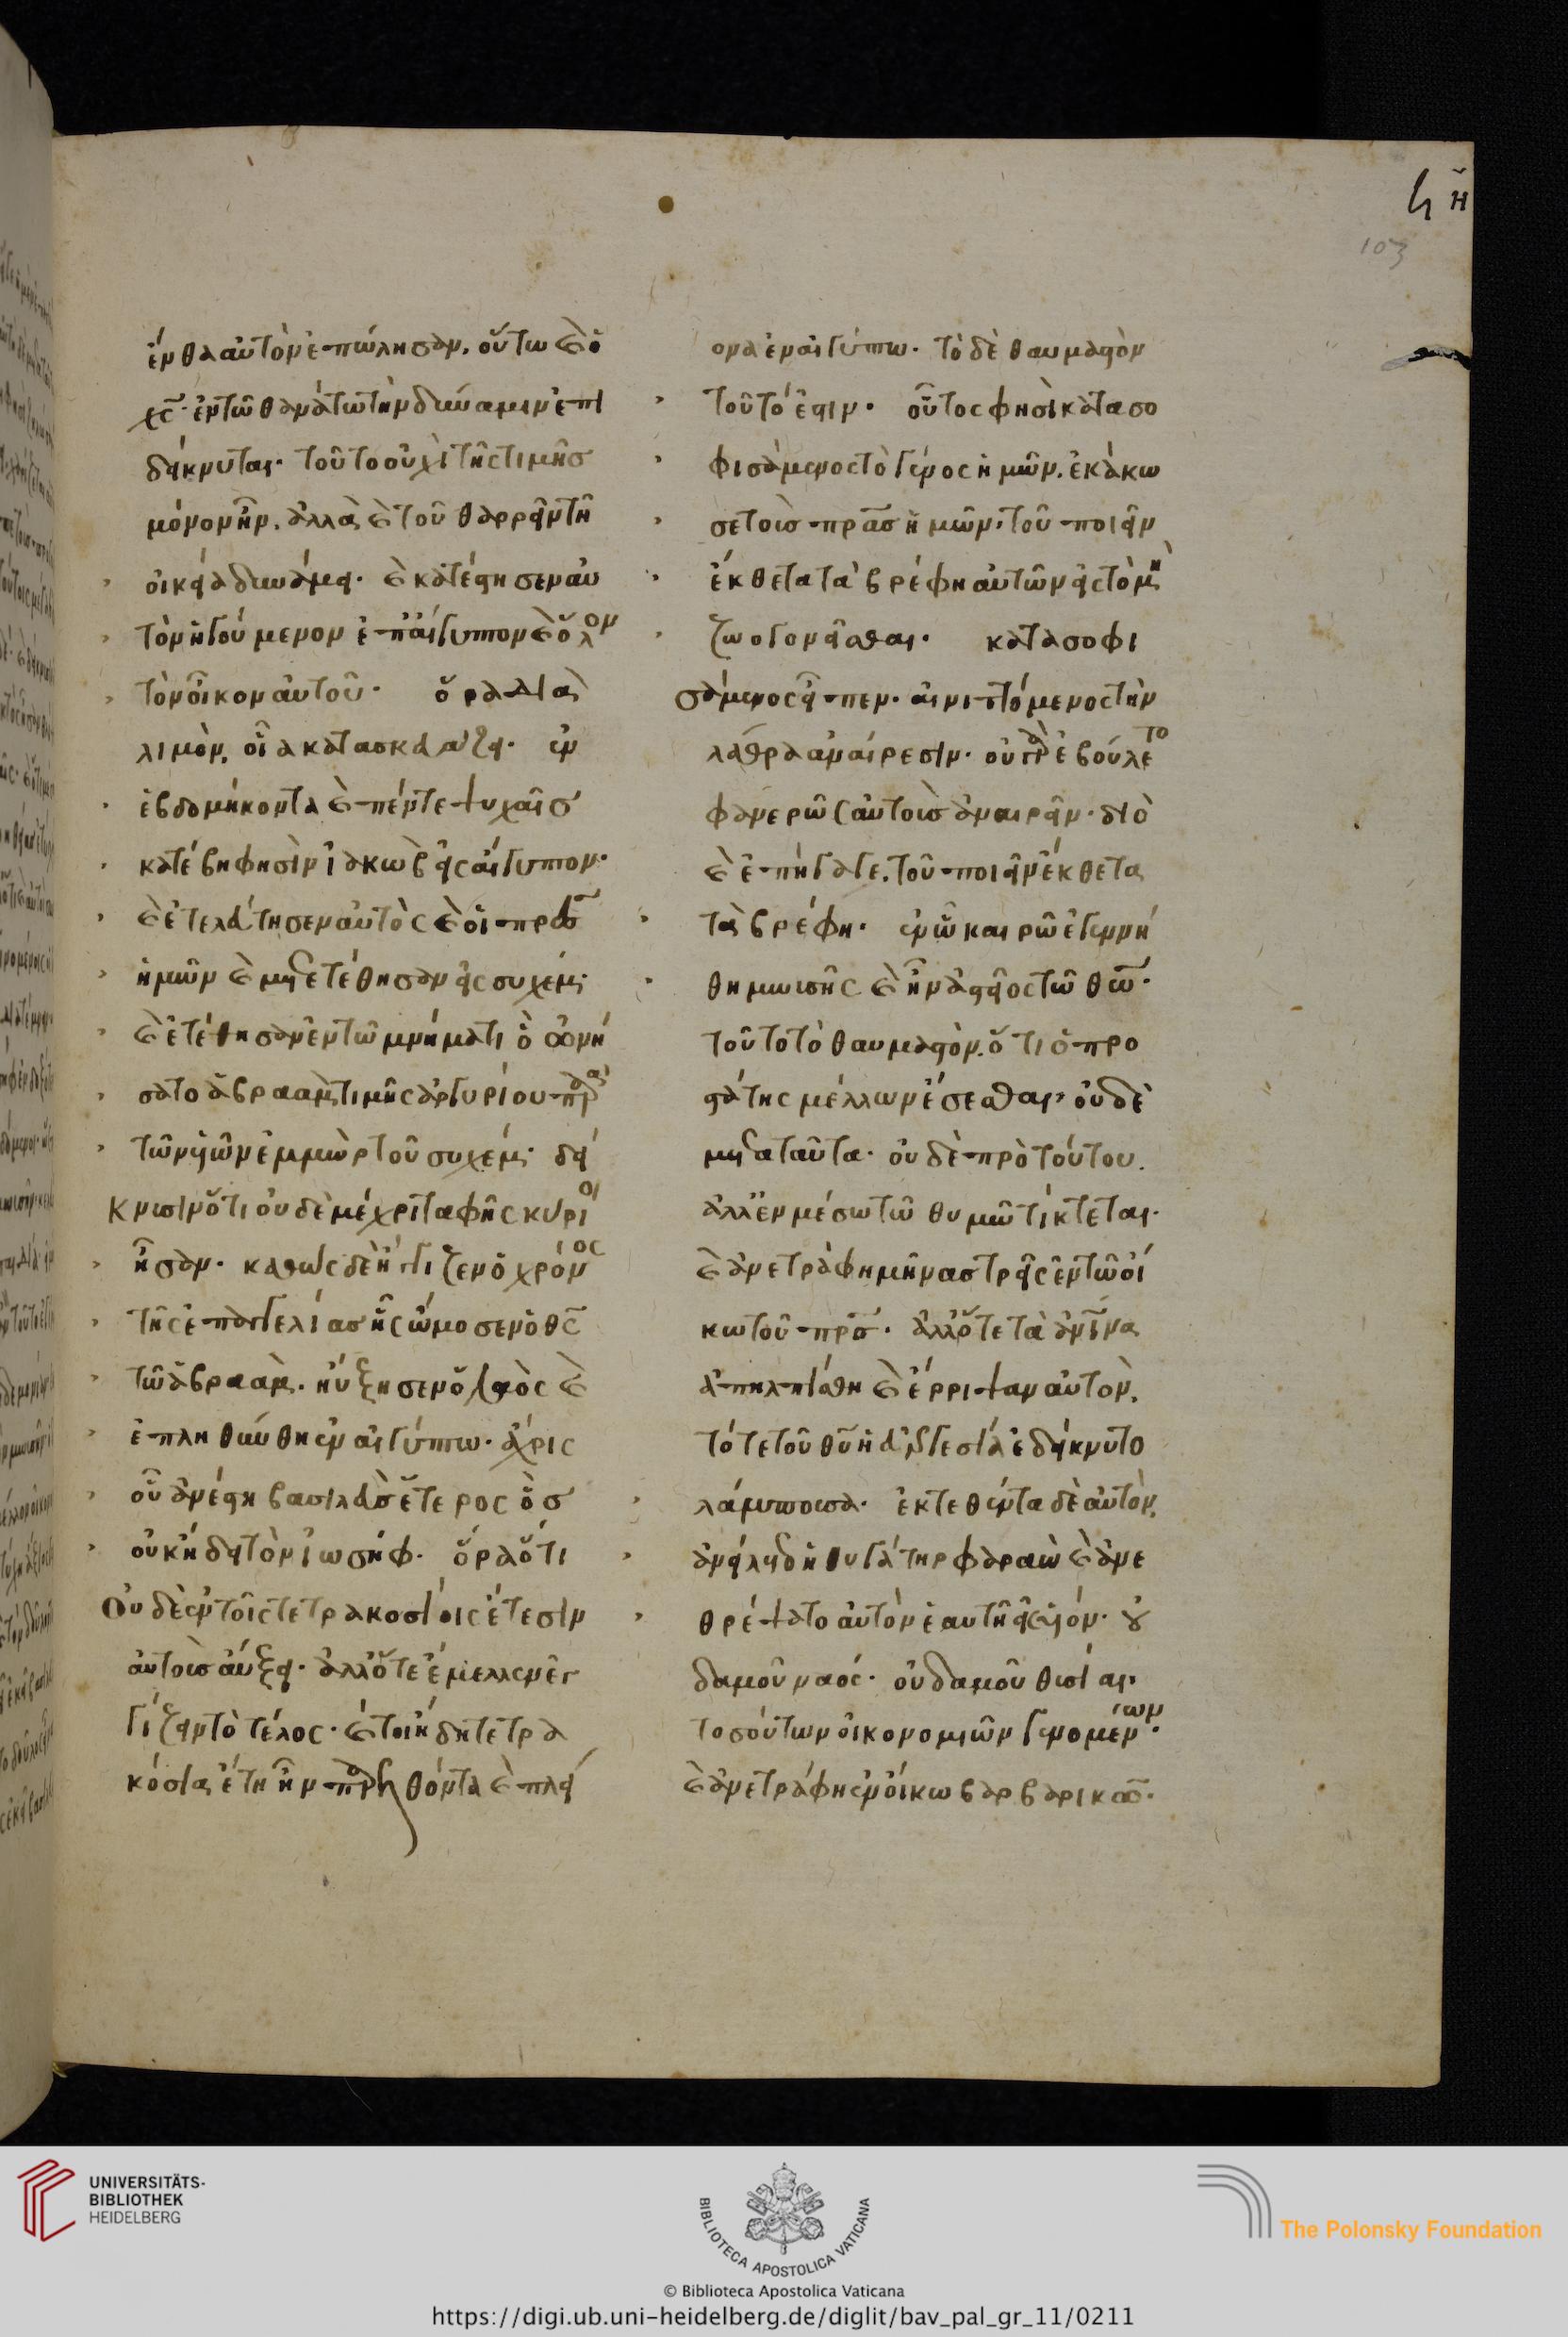 ϟη
103
ἔνθα αὐτὸν ἐπώλησαν. οὕτω καὶ ὁ
χς ἐν τῶ θανάτω τὴν δύναμιν ἐπι
δείκνυται. τοῦτο οὐχὶ τῆς τιμῆς
μόνον ἦν. ἀλλὰ καὶ τοῦ θαρρεῖν τῆ
οἰκεία δυνάμει. καὶ κατέστησεν αὐ
τὸν ἡγούμενον ἐπ' αἴγυπτον καὶ ὅλον
τὸν οἶκον αὐτοῦ. ὅρα διὰ
λιμὸν, οἷα κατασκευάζει. ἐν
ἑβδομήκοντα καὶ πέντε ψυχαῖς
κατέβη φησὶν ἰακὼβ εἰς αἴγυπτον.
καὶ ἐτελεύτησεν αὐτὸς καὶ οἱ πρς
ἡμῶν καὶ μετετέθησαν εἰς συχέμ.
καὶ ἐτέθησαν ἐν τῶ μνήματι ὃ ὠνή
σατο ἀβραὰμ τιμῆς ἀργυρίου παρὰ
τῶν υἱῶν ἐμμὼρ τοῦ συχέμ. δεί
κνυσιν ὅτι οὐδὲ μέχρι ταφῆς κύριοι
ἦσαν. καθὼς δὲ ἤγγιζεν ὁ χρόνος
τῆς ἐπαγγελίας ἧς ὤμοσεν ὁ θς
τῶ ἀβραὰμ. ηὔξησεν ὁ λαὸς καὶ
ἐπληθύνθη ἐν αἰγύπτω. ἄχρις
οὗ ἀνέστη βασιλεὺς ἕτερος ὃς
οὐκ ἤδει τὸν ἰωσήφ. ὅρα ὅτι
οὐδὲ ἐν τοῖς τετρακοσίοις ἔτεσιν
αὐτοὺς αὔξει. ἀλλ' ὅτε ἔμελλεν ἐγ
γίζειν τὸ τέλος. καίτοι ἤδη τετρα
κόσια ἔτη ἦν παρελθόντα καὶ πλεί
ονα ἐν αἰγύπτω. τὸ δὲ θαυμαστὸν
τοῦτό ἐστιν. οὗτος φησὶ κατασο
φισάμενος τὸ γένος ἡμῶν. ἐκάκω
σε τοὺς πρας ἡμῶν. τοῦ ποιεῖν
ἔκθετα τὰ βρέφη αὐτῶν εἰς τὸ μὴ
ζωογονεῖσθαι. κατασοφι
σάμενος εἶπεν. αἰνιττόμενος τὴν
λάθρα ἀναίρεσιν. οὐ γὰρ ἐβούλετο
φανερῶς αὐτοὺς ἀναιρεῖν. διὸ
καὶ ἐπήγαγε. τοῦ ποιεῖν ἔκθετα
τὰ βρέφη. ἐν ὧ καιρῶ ἐγεννή
θη μωυσῆς καὶ ἦν ἀστεῖος τῶ θω.
τοῦτο τὸ θαυμαστὸν. ὅτι ὁ προ
στάτης μέλλων ἔσεσθαι. οὐδὲ
μετὰ ταῦτα. οὐδὲ πρὸ τούτου.
ἀλλ' ἐν μέσω τῶ θυμῶ τίκτεται.
καὶ ἀνετράφη μῆνας τρεῖς ἐν τῶ οἴ
κω τοῦ πρς. ἀλλ' ὅτε τὰ ἀνινα
ἀπηλπίσθη καὶ ἔρριψαν αὐτὸν.
τότε τοῦ θυ ἡ εὐεργεσία ἐδείκνυτο
λάμπουσα. ἐκτεθέντα δὲ αὐτὸν.
ἀνείλετο ἡ θυγάτηρ φαραὼ καὶ ἀνε
θρέψατο αὐτὸν ἑαυτῆ εἰς υἱόν. οὐ
δαμοῦ ναός. οὐδαμοῦ θυσίαι.
τοσούτων οἰκονομιῶν γενομένων.
καὶ ἀνετράφη ἐν οἴκω βαρβαρικῶ.
UNIVERSITÄTS-
BIBLIOTHEK
HEIDELBERG
BIBLIOTECA APOSTOLICA VATICANA
The Polonsky Foundation
© Biblioteca Apostolica Vaticana
https://digi.ub.uni-heidelberg.de/diglit/bav_pal_gr_11/0211